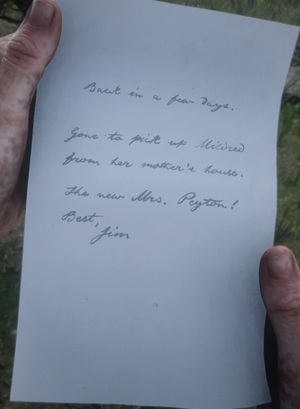 Back in a few days.
Gone to pick up Mildred
from her mother's house.
The new Mrs. Peyton!
Best,
Jim